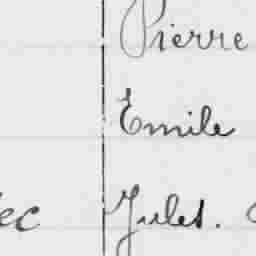 Pierre
Emile
Jules.